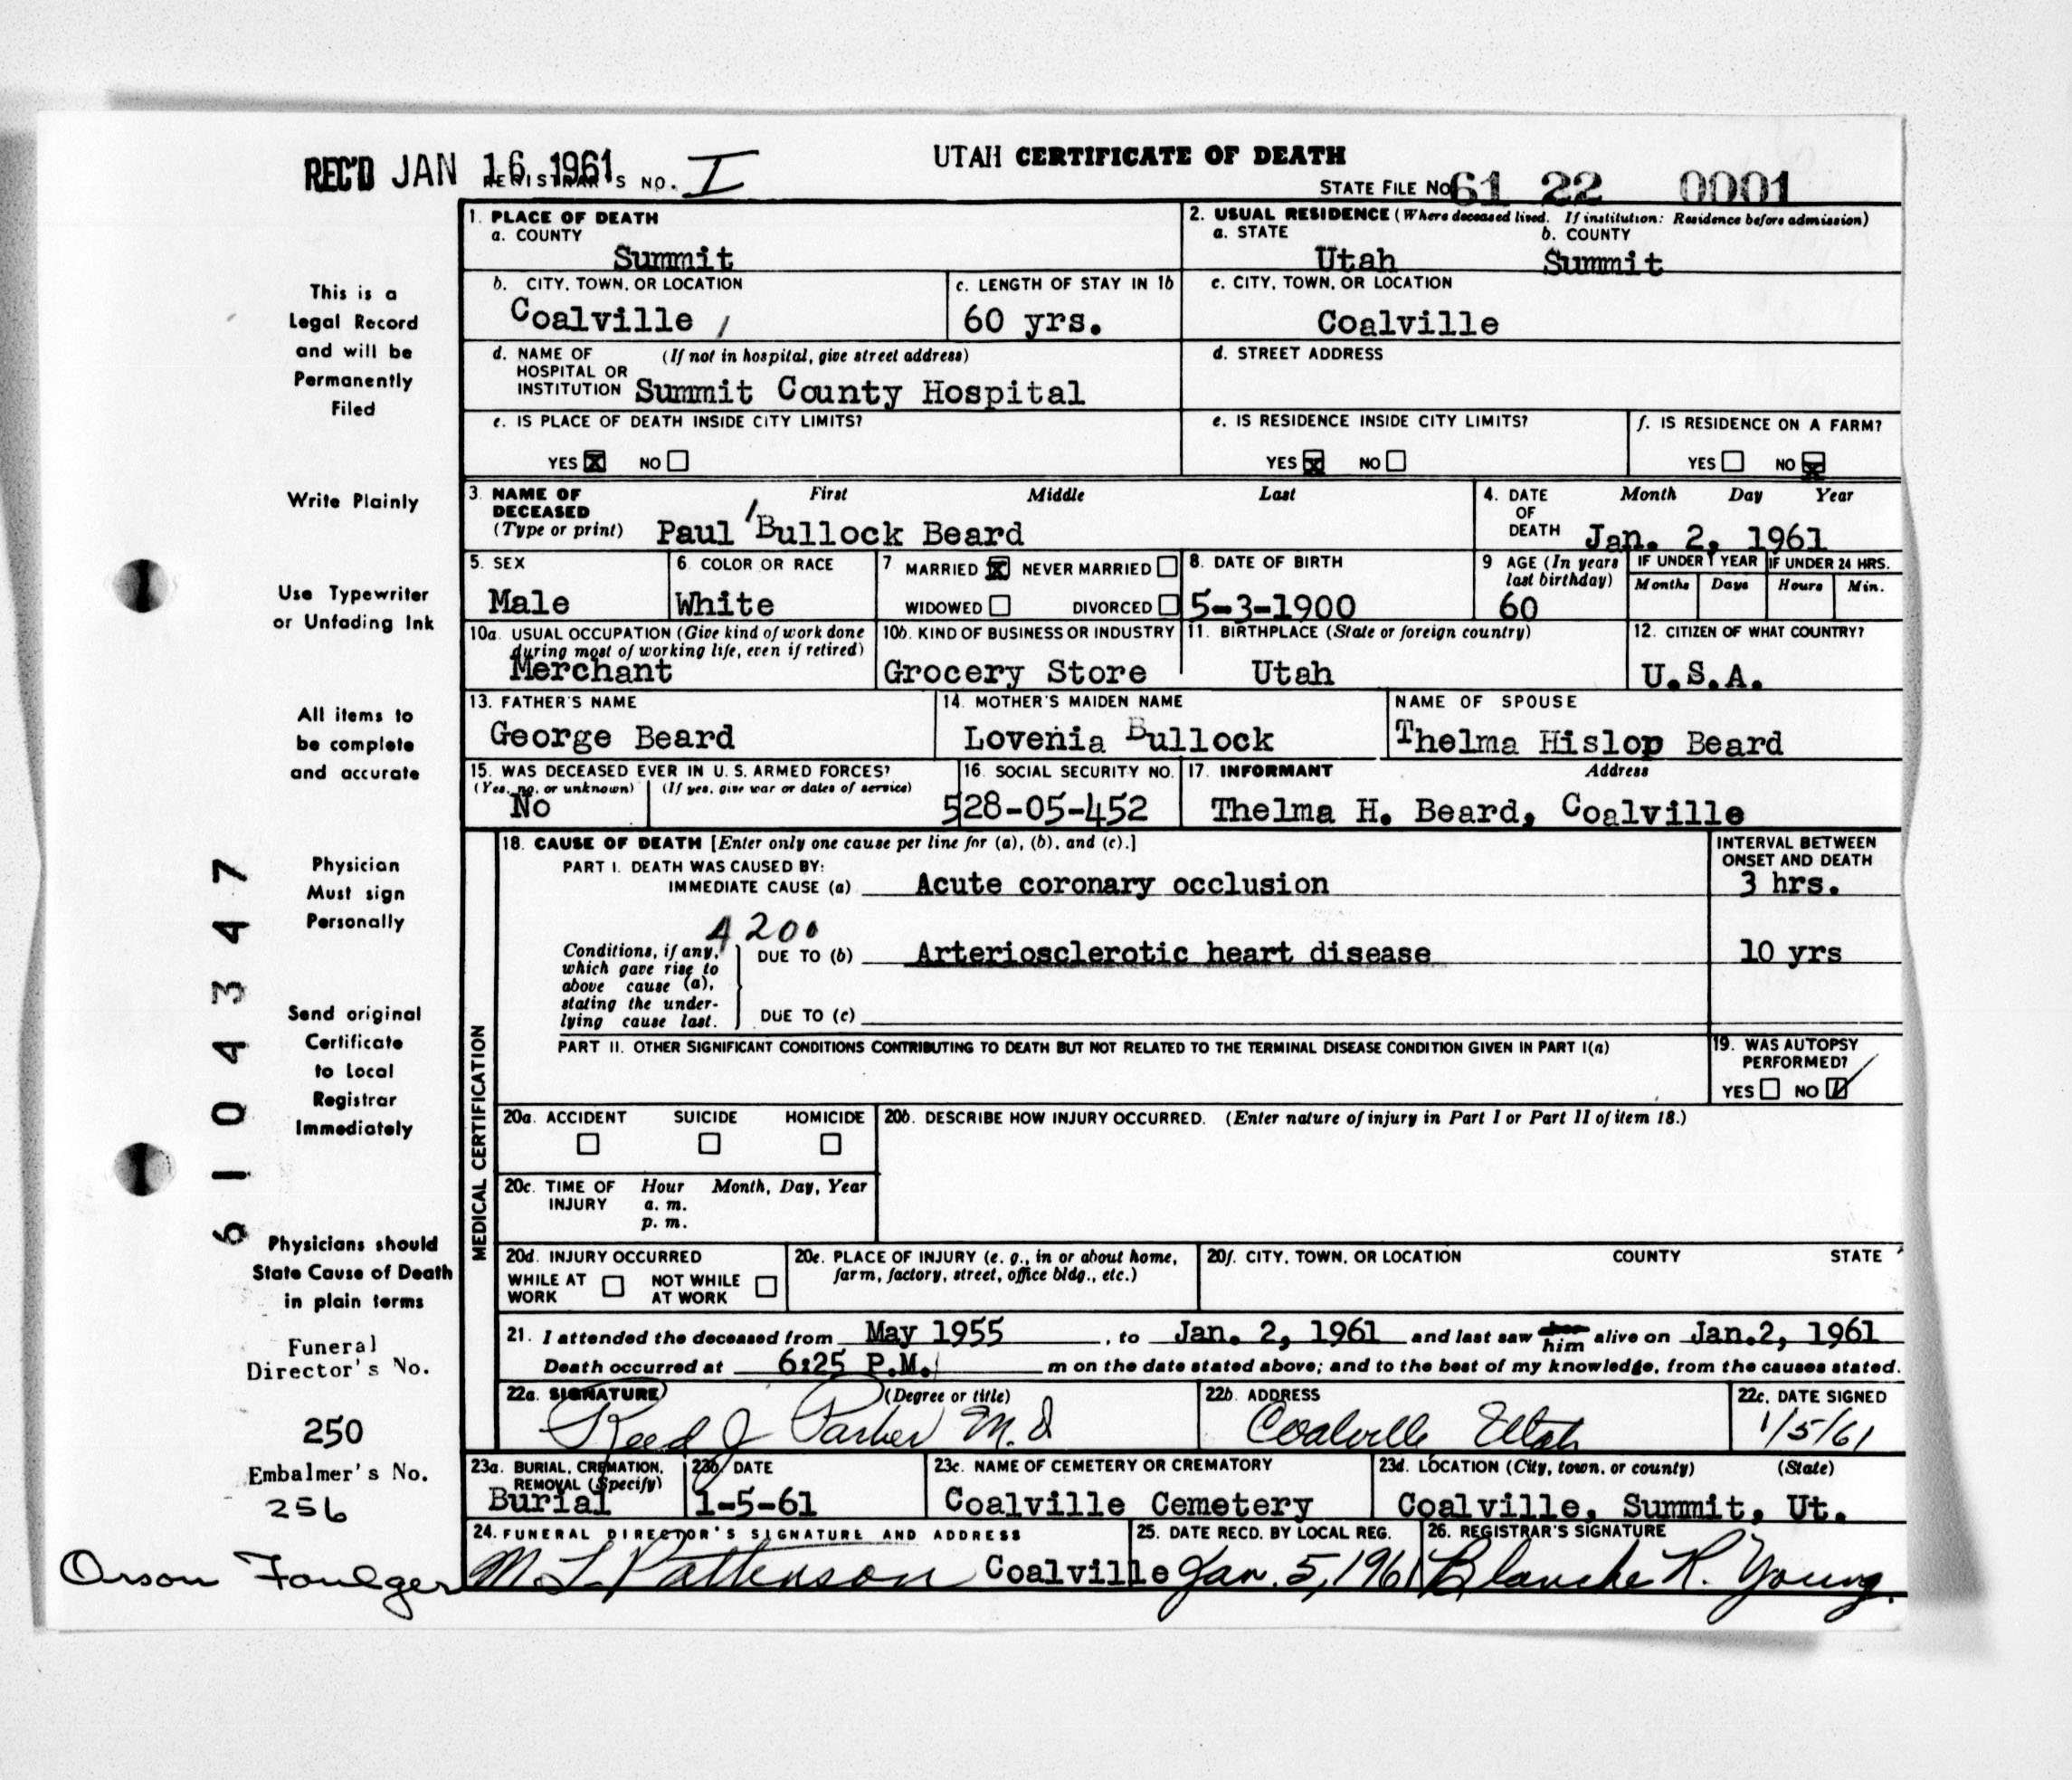 UTAH CERTIFICATE OF DEATH
REC'D JAN 16 1961
REGISTRAR'S NO. I
STATE FILE NO. 61 22 0001
This is a
Legal Record
and will be
Permanently
Filed
Write Plainly
Use Typewriter
or Unfading Ink
All items to
be complete
and accurate
Physician
Must sign
Personally
Send original
Certificate
to Local
Registrar
Immediately
Physicians should
State Cause of Death
in plain terms
Funeral
Director's No.
250
Embalmer's No.
256
Orson Foulger
6104347
1. PLACE OF DEATH
a. COUNTY
Summit
2. USUAL RESIDENCE (Where deceased lived. If institution: Residence before admission)
a. STATE b. COUNTY
Utah Summit
b. CITY, TOWN, OR LOCATION
Coalville
c. LENGTH OF STAY IN 1b
60 yrs.
c. CITY, TOWN, OR LOCATION
Coalville
d. NAME OF (If not in hospital, give street address)
HOSPITAL OR
INSTITUTION Summit County Hospital
d. STREET ADDRESS
e. IS PLACE OF DEATH INSIDE CITY LIMITS?
YES X NO
e. IS RESIDENCE INSIDE CITY LIMITS?
YES X NO
f. IS RESIDENCE ON A FARM?
YES NO X
3. NAME OF DECEASED
(Type or print)
First Middle Last
Paul Bullock Beard
4. DATE OF DEATH
Month Day Year
Jan. 2, 1961
5. SEX
Male
6. COLOR OR RACE
White
7 MARRIED X NEVER MARRIED
WIDOWED DIVORCED
8. DATE OF BIRTH
5-3-1900
9 AGE (In years last birthday)
60
IF UNDER 1 YEAR
Months Days
IF UNDER 24 HRS.
Hours Min.
10a. USUAL OCCUPATION (Give kind of work done
during most of working life, even if retired)
Merchant
10b. KIND OF BUSINESS OR INDUSTRY
Grocery Store
11. BIRTHPLACE (State or foreign country)
Utah
12. CITIZEN OF WHAT COUNTRY?
U.S.A.
13. FATHER'S NAME
George Beard
14. MOTHER'S MAIDEN NAME
Lovenia Bullock
NAME OF SPOUSE
Thelma Hislop Beard
15. WAS DECEASED EVER IN U. S. ARMED FORCES?
(Yes, no, or unknown) (If yes, give war or dates of service)
No
16. SOCIAL SECURITY NO.
528-05-452
17. INFORMANT Address
Thelma H. Beard, Coalville
MEDICAL CERTIFICATION
18. CAUSE OF DEATH [Enter only one cause per line for (a), (b), and (c).]
PART I. DEATH WAS CAUSED BY:
IMMEDIATE CAUSE (a) Acute coronary occlusion
INTERVAL BETWEEN
ONSET AND DEATH
3 hrs.
4200
Conditions, if any,
which gave rise to
above cause (a),
stating the under-
lying cause last.
DUE TO (b) Arteriosclerotic heart disease
10 yrs
DUE TO (c)
PART II. OTHER SIGNIFICANT CONDITIONS CONTRIBUTING TO DEATH BUT NOT RELATED TO THE TERMINAL DISEASE CONDITION GIVEN IN PART I(a)
19. WAS AUTOPSY
PERFORMED?
YES NO
20a. ACCIDENT SUICIDE HOMICIDE
20b. DESCRIBE HOW INJURY OCCURRED. (Enter nature of injury in Part I or Part II of item 18.)
20c. TIME OF INJURY
Hour Month, Day, Year
a. m.
p. m.
20d. INJURY OCCURRED
WHILE AT WORK NOT WHILE AT WORK
20e. PLACE OF INJURY (e. g., in or about home,
farm, factory, street, office bldg., etc.)
20f. CITY, TOWN, OR LOCATION COUNTY STATE
21. I attended the deceased from May 1955, to Jan. 2, 1961 and last saw him alive on Jan.2, 1961
Death occurred at 6:25 P.M. m on the date stated above; and to the best of my knowledge, from the causes stated.
22a. SIGNATURE (Degree or title)
Reed J Parker M.D
22b. ADDRESS
Coalville Utah
22c. DATE SIGNED
1/5/61
23a. BURIAL, CREMATION,
REMOVAL (Specify)
Burial
23b. DATE
1-5-61
23c. NAME OF CEMETERY OR CREMATORY
Coalville Cemetery
23d. LOCATION (City, town, or county) (State)
Coalville, Summit, Ut.
24. FUNERAL DIRECTOR'S SIGNATURE AND ADDRESS
M L Pattenson Coalville
25. DATE RECD. BY LOCAL REG.
Jan. 5, 1961
26. REGISTRAR'S SIGNATURE
Blanche R. Young.